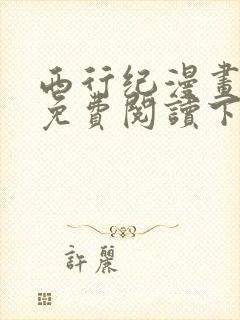 西行纪漫畫
免費閱讀下
許麗